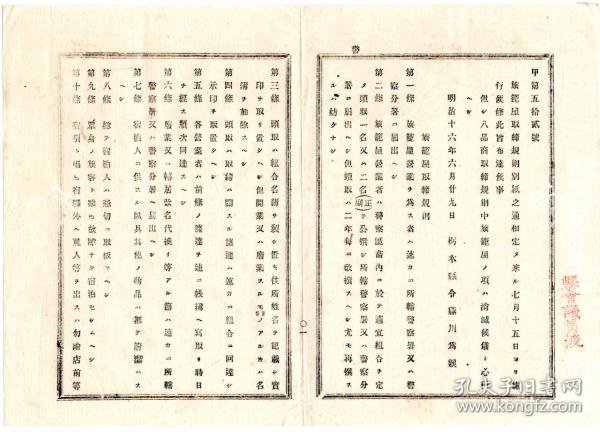 警
甲第五拾貳號
旅籠屋取締規則別紙之通相定メ來ル七月十五日ヨリ施
行候條此旨布達候事
但シ八品商取締規則中旅籠屋ノ項ハ消滅候儀ト心得
ヘシ
明治十六年六月廿九日　栃木縣令藤川爲親
旅籠屋取締規則
第一條　旅籠屋營業ヲ爲ス者ハ速カニ所轄警察署又ハ警
察分署ニ届出ヘシ
第二條　旅籠屋營業者ハ警察區畵内ニ於テ適宜組合ヲ定
メ頭取一名又ハ二名正副ヲ公撰シ所轄警察署又ハ警察分
署ニ届出ヘシ但頭取ハ二年毎ニ改撰スヘシ尤モ再撰ス
ルハ妨ケナシ
〇一
第三條　頭取ハ組合名簿ヲ製シ置キ住所姓名ヲ記載シ實
印ヲ取リ置クヘシ但開業又ハ廢業スルモノアルトキハ名
簿ヲ加除スヘシ
第四條　頭取ハ取締ニ關スル諸達ハ速カニ組合ニ回達シ
承印ヲ取置クヘシ
第五條　各營業者ハ前條ノ諸達ヲ速ニ帳簿ヘ寫取リ時日
ヲ經ス順次回達スヘシ
第六條　廢業又ハ轉居改名代換リ等アル節ハ速カニ所轄
警察署又ハ警察分署ヘ届出ヘシ
第七條　宿泊人ニ供スル臥具其他ノ物品ハ都テ清潔ニス
ヘシ
第八條　總テ宿泊人ハ懇切ニ取扱フヘシ
第九條　單身ノ旅客ト雖モ故障ナク宿泊セシムヘシ
第十條　宿引ト唱ヒ宿驛外ヘ雇人等ヲ出スハ勿論店前等
縣會議員渡
孔夫子旧书网
www.kongfz.com